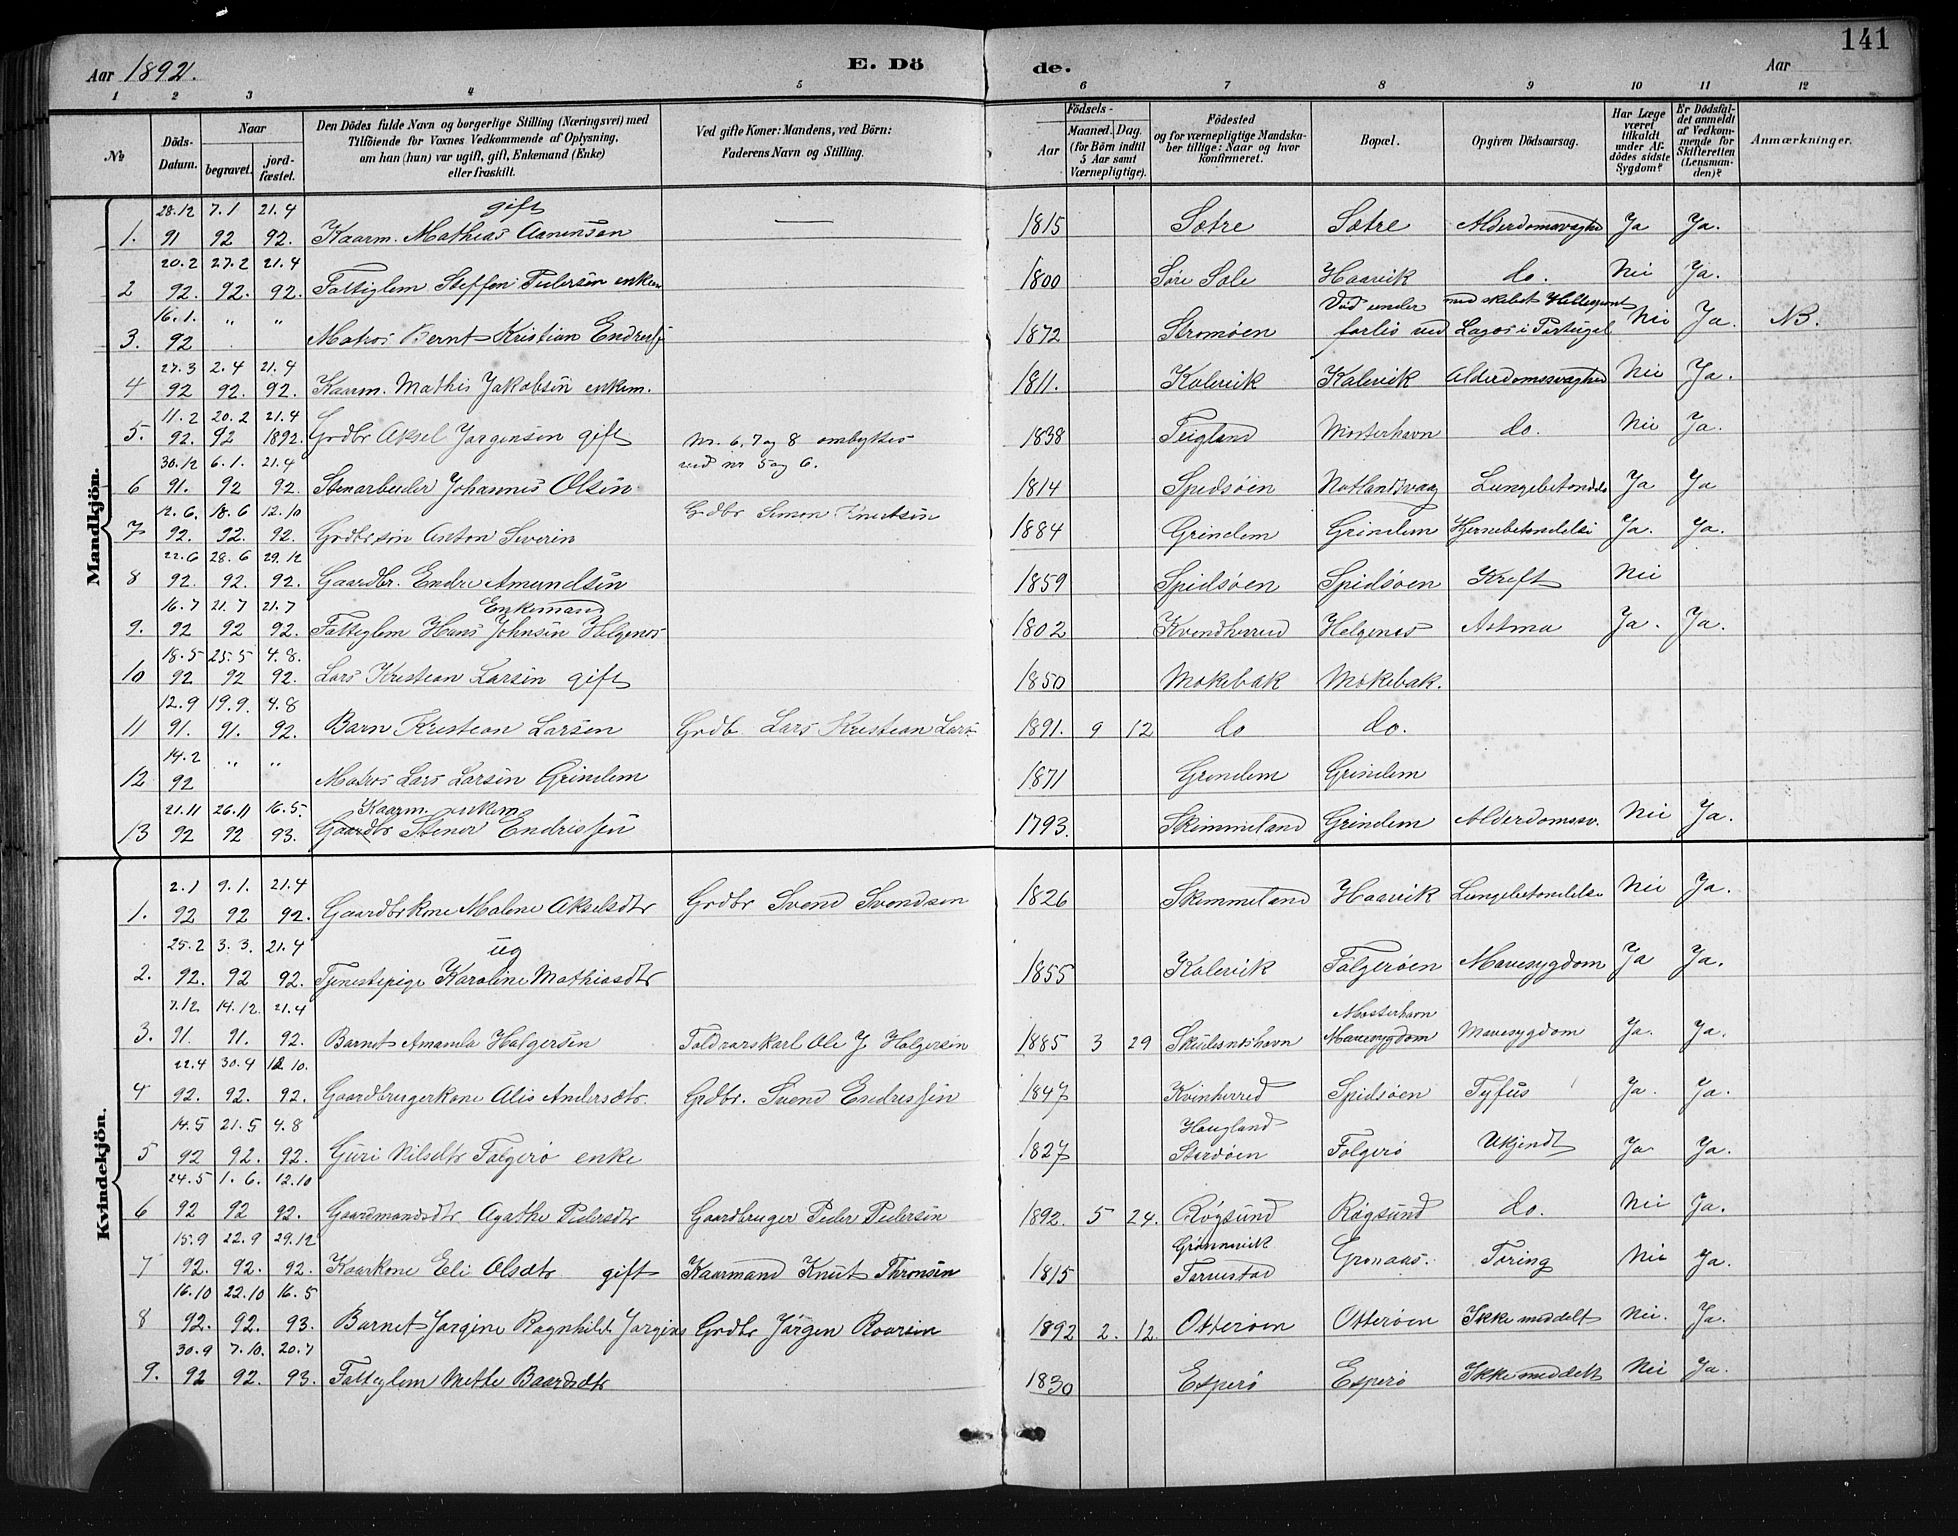 141
Aar 1892.
E. Dö
de.
Aar
1 2 3 4 5 6 7 8 9 10 11 12
No
Döds-Datum.
Naar
begravet.
jord-fæstet.
Den Dödes fulde Navn og borgerlige Stilling (Næringsvei) med
Tilföiende for Voxnes Vedkommende af Oplysning,
om han (hun) var ugift, gift, Enkemand (Enke)
eller fraskilt.
Ved gifte Koner: Mandens, ved Börn:
Faderens Navn og Stilling.
Födsels-
Aar
Maaned. Dag.
(for Börn indtil
5 Aar samt
Værnepligtige).
Födested
og for værnepligtige Mandska-
ber tillige: Naar og hvor
konfirmeret.
Bopæl.
Opgiven Dödsaarsag.
Har Læge
været
tilkaldt
under Af-
dödes sidste
Sygdom?
Er Dödsfal-
det anmeldt
af Vedkom-
mende for
Skifteretten
(Lensman-
den)?
Anmærkninger.
Mandkjön.
28.12 7.1 21.4 gift
1. 91 92 92. Kaarm. Mathias Aanensen — 1815 Sætre Sætre Alderdomssvaghed Ja Ja.
20.2 27.2 21.4
2 92. 92. 92. Fattiglem Steffen Pedersen enkem 1800 Søre Sole Haavik do. Nei Ja.
16.1. " " Død under med skibet Hellespont
3. 92 Matros Bernt Kristian Endresen 1872 Stromøen forlis ved Lagos i Portugal Nei Ja. NB.
27.3 2.4 21.4
4 92 92. 92. Kaarm. Mathis Jakobsen enkem. 1811. Kalevik Kalevik Alderdomssvaghed Nei Ja.
11.2 20.2 21.4
5. 92. 92 1892. Grdbr Aksel Jørgensen gift Nr. 6, 7 og 8 ombyttes 1838 Teigland Mosterhavn do. Nei Ja.
30.12 6.1. 21.4 ved nr 5 og 6.
6 91. 92 92. Stenarbeider Johannes Olsen 1814 Spidsøen Notlandsvaag Lungebetændelse Ja Ja
12.6. 18.6 12.10 Grdbr Simon Knutsen
7 92. 92. 92. Grdbrsøn Anton Severin 1884 Grindem Grindem Hjernebetændelse Ja. Ja.
22.6 28.6 29.12
8 92. 92. 92. Gaardbr. Endre Amundsen 1859 Spidsøen Spidsøen Kreft Nei
16.7 21.7 21.7 Enkemand
9. 92 92 92. Fattiglem Hans Johnsen Helgenes 1802 Kvindherred Helgenes Astma Ja. Ja.
18.5 25.5 4.8.
10 92 92 92. Lars Kristian Larsen gift 1850 Mokebak Mokebak.
12.9 19.9. 4.8
11 91. 91. 92. Barn Kristian Larsen Grdb. Lars Kristian Lars. 1891. 9 12 do do.
14.2 " "
12 92 Matros Lars Larsen Grindem 1871 Grindem Grindem
21.11 26.11 16.5. Kaarm. enkem
13 92 92 93. Gaardbr Stener Endressen 1793. Skimmeland Grindem Alderdomssv. Nei Ja.
Kvindekjön.
2.1 9.1. 21.4
1. 92 92 92. Gaardbrkone Malene Akselsdtr Grdbr Svend Svendsen 1826 Skimmeland Haavik Lungebetændelse Nei Ja.
25.2 3.3. 21.4 ug
2. 92. 92 92. Tjenestepige Karoline Mathiasdtr 1855 Kalevik Folgerøen Mavesygdom Ja Ja.
7.12 14.12. 21.4 Mosterhavn
3. 91. 91. 92. Barnet Amanda Holgersen Toldvarskarl Ole J. Holgersen 1885 3 29 Skudesneshavn Mavesygdom Mavesygdom Ja. Ja.
22.4 30.4 12.10.
4 92. 92. 92. Gaardbrugerkone Alis Andersdtr. Grdbr. Svend Endressen 1847 Kvinherred Spidsøen Tyfus Ja. Ja.
14.5 21.5 4.8 Haugland
5 92 92. 92. Guri Nilsdtr Folgerø enke 1827 Stordøen Folgerø Ukjendt Ja. Ja.
24.5 1.6. 12.10
6 92 92 92. Gaardmandsdtr Agathe Pedersdtr Gaardbruger Peder Pedersen 1892. 5 24. Røgsund Røgsund do. Nei Ja.
15.9 22.9 29.12 Grønnevik
7 92. 92. 92. Kaarkone Eli Olsdtr gift Kaarmand Knut Thronsen 1815 Torvestad Gronaas. Tæring Nei Ja.
16.10 22.10 16.5
8 92. 92. 93. Barnet Jørgine Ragnhild Jørgins Grdbr Jørgen Roarsen 1892 2. 12. Otterøen Otterøen Ikke meddelt Nei. Ja.
30.9 7.10. 20.7
9. 92 92. 93. Fattiglem Mette Baardsdtr 1830 Esperø Esperø Ikke meddelt Nei Ja.